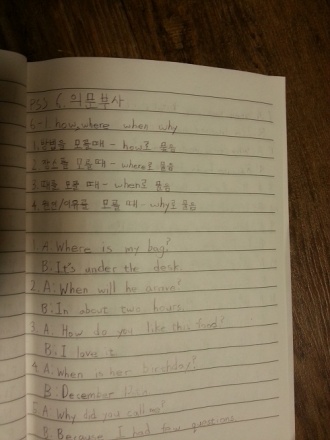 PSS 6. 의문부사
6-1 how, where when why
1. 방법을 모를때 - how로 물음
2. 장소를 모를때 - where로 물음
3. 때를 모를 때 - when로 물음
4. 이유를 모를 때 - why로 물음
1. A: Where is my bag?
B: It's under the desk.
2. A: When will he arave?
B: In about two hours.
3 A. How do you like this food?
B: I love it
4 A: When is her birthday?
B: December
5 A: Why did you call me?
B. Because I had few questions.